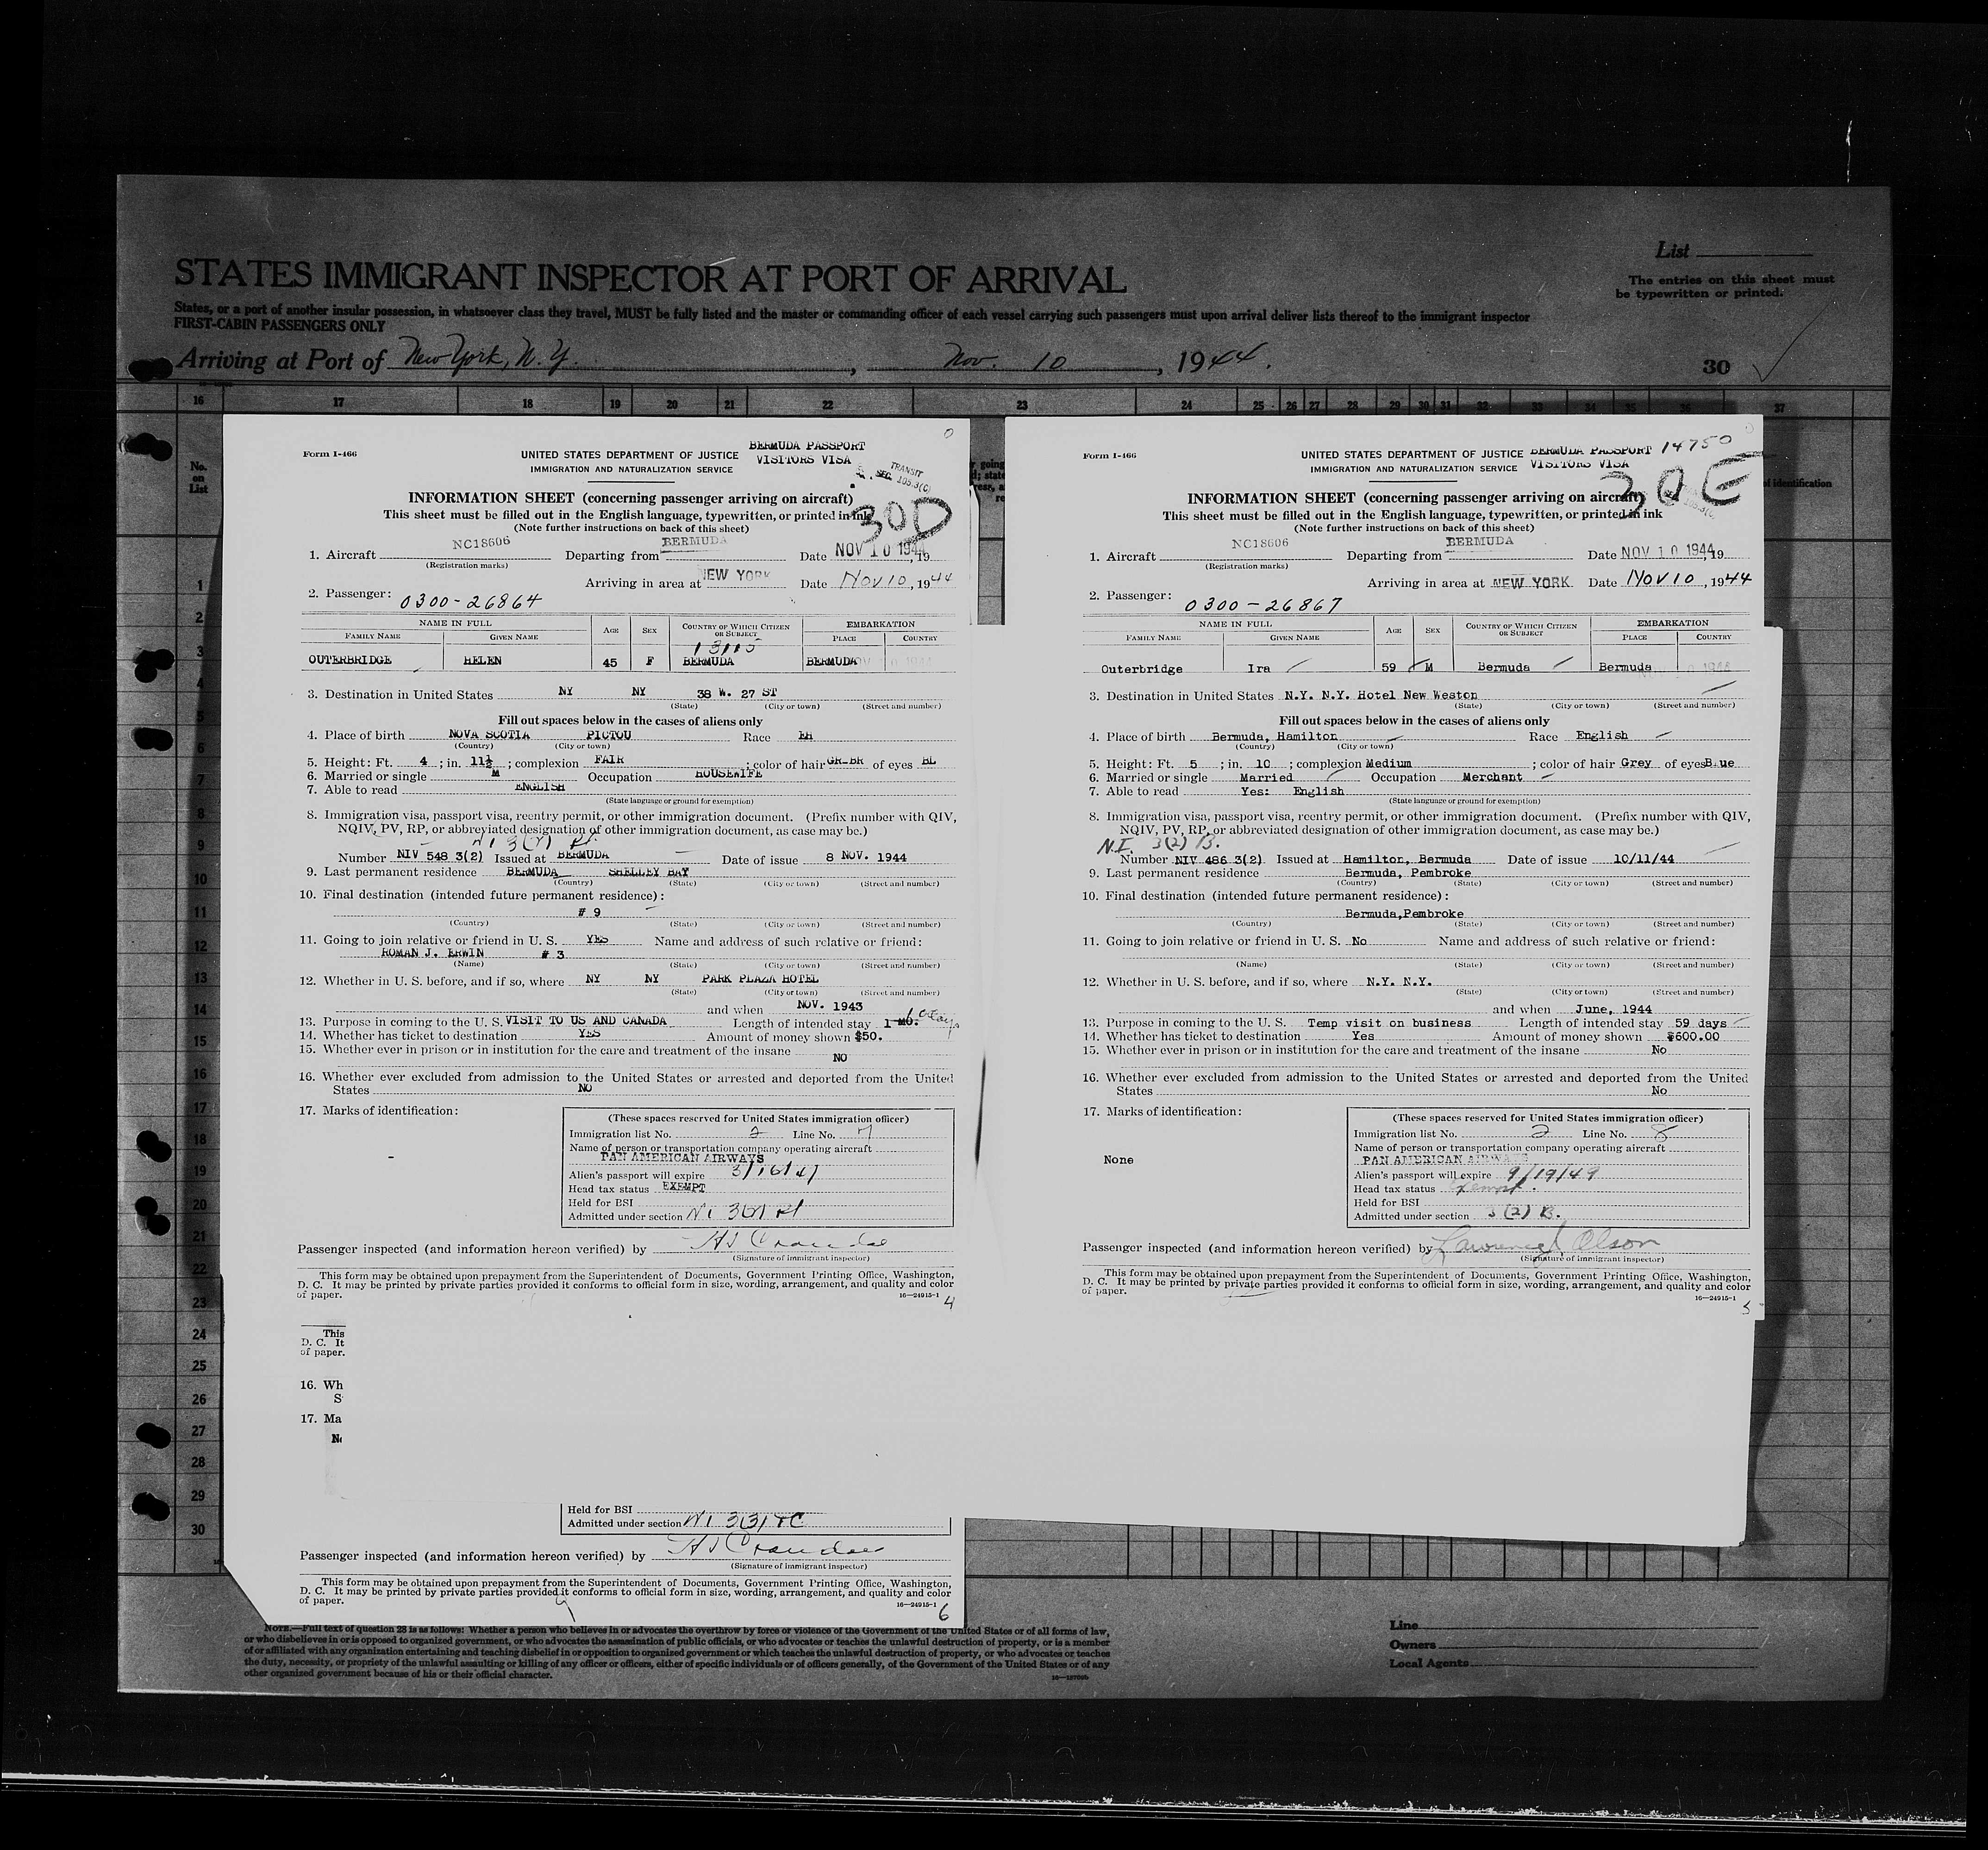 List
STATES IMMIGRANT INSPECTOR AT PORT OF ARRIVAL
The entries on this sheet must
be typewritten or printed.
States, or a port of another insular possession, in whatsoever class they travel, MUST be fully listed and the master or commanding officer of each vessel carrying such passengers must upon arrival deliver lists thereof to the immigrant inspector
FIRST-CABIN PASSENGERS ONLY
Arriving at Port of New York, N. Y. , Nov. 10 , 1944. 30
16 17 18 19 20 21 22 23 24 25 26 27 28 29 30 31 32 33 34 35 36 37
No.
on
List
1
2
3
4
5
6
7
8
9
10
11
12
13
14
15
16
17
18
19
20
21
22
23
24
25
26
27
28
29
30
Form I-466
UNITED STATES DEPARTMENT OF JUSTICE
IMMIGRATION AND NATURALIZATION SERVICE
BERMUDA PASSPORT
VISITORS VISA
TRANSIT
SEC 105.3(C)
30D
INFORMATION SHEET (concerning passenger arriving on aircraft)
This sheet must be filled out in the English language, typewritten, or printed in ink
(Note further instructions on back of this sheet)
1. Aircraft NC18606 Departing from BERMUDA Date NOV 10 1944, 19
(Registration marks)
Arriving in area at NEW YORK Date NOV 10, 1944
2. Passenger: 0300-26864
NAME IN FULL AGE SEX COUNTRY OF WHICH CITIZEN OR SUBJECT EMBARKATION
FAMILY NAME GIVEN NAME PLACE COUNTRY
OUTERBRIDGE HELEN 45 F BERMUDA BERMUDA
3. Destination in United States NY NY 38 W. 27 ST
(State) (City or town) (Street and number)
Fill out spaces below in the cases of aliens only
4. Place of birth NOVA SCOTIA PICTOU Race
(Country) (City or town)
5. Height: Ft. 4 ; in. 11½ ; complexion FAIR ; color of hair GR-BR of eyes BL
6. Married or single M Occupation HOUSEWIFE
7. Able to read ENGLISH
(State language or ground for exemption)
8. Immigration visa, passport visa, reentry permit, or other immigration document. (Prefix number with QIV,
NQIV, PV, RP, or abbreviated designation of other immigration document, as case may be.)
Number NIV 548 3(2) Issued at BERMUDA Date of issue 8 NOV. 1944
9. Last permanent residence BERMUDA SHELLEY BAY
(Country) (State) (City or town) (Street and number)
10. Final destination (intended future permanent residence):
# 9
(Country) (State) (City or town) (Street and number)
11. Going to join relative or friend in U. S. YES Name and address of such relative or friend:
ROMAN J. ERWIN # 3
(Name) (State) (City or town) (Street and number)
12. Whether in U. S. before, and if so, where NY NY PARK PLAZA HOTEL
(State) (City or town) (Street and number)
and when NOV. 1943
13. Purpose in coming to the U. S. VISIT TO US AND CANADA Length of intended stay 1 MO.
14. Whether has ticket to destination YES Amount of money shown $50.
15. Whether ever in prison or in institution for the care and treatment of the insane NO
16. Whether ever excluded from admission to the United States or arrested and deported from the United
States NO
17. Marks of identification:
-
(These spaces reserved for United States immigration officer)
Immigration list No. 2 Line No. 7
Name of person or transportation company operating aircraft
PAN AMERICAN AIRWAYS
Alien's passport will expire 3/16/47
Head tax status EXEMPT
Held for BSI
Admitted under section
Passenger inspected (and information hereon verified) by
(Signature of immigrant inspector)
This form may be obtained upon prepayment from the Superintendent of Documents, Government Printing Office, Washington,
D. C. It may be printed by private parties provided it conforms to official form in size, wording, arrangement, and quality and color
of paper.
16—24915-1
4
This
D. C. It
of paper.
16. Wh
S
17. Ma
Held for BSI
Admitted under section
Passenger inspected (and information hereon verified) by
(Signature of immigrant inspector)
This form may be obtained upon prepayment from the Superintendent of Documents, Government Printing Office, Washington,
D. C. It may be printed by private parties provided it conforms to official form in size, wording, arrangement, and quality and color
of paper.
16—24915-1
6
Form I-466
UNITED STATES DEPARTMENT OF JUSTICE
IMMIGRATION AND NATURALIZATION SERVICE
BERMUDA PASSPORT 14750
VISITORS VISA
30E
INFORMATION SHEET (concerning passenger arriving on aircraft)
This sheet must be filled out in the English language, typewritten, or printed in ink
(Note further instructions on back of this sheet)
1. Aircraft NC18606 Departing from BERMUDA Date NOV 10 1944, 19
(Registration marks)
Arriving in area at NEW YORK Date NOV 10, 1944
2. Passenger: 0300-26867
NAME IN FULL AGE SEX COUNTRY OF WHICH CITIZEN OR SUBJECT EMBARKATION
FAMILY NAME GIVEN NAME PLACE COUNTRY
Outerbridge Ira 59 M Bermuda Bermuda
3. Destination in United States N.Y. N.Y. Hotel New Weston
(State) (City or town) (Street and number)
Fill out spaces below in the cases of aliens only
4. Place of birth Bermuda, Hamilton Race English
(Country) (City or town)
5. Height: Ft. 5 ; in. 10 ; complexion Medium ; color of hair Grey of eyes Blue
6. Married or single Married Occupation Merchant
7. Able to read Yes: English
(State language or ground for exemption)
8. Immigration visa, passport visa, reentry permit, or other immigration document. (Prefix number with QIV,
NQIV, PV, RP, or abbreviated designation of other immigration document, as case may be.)
N.I. 3(2) B.
Number NIV 486 3(2) Issued at Hamilton, Bermuda Date of issue 10/11/44
9. Last permanent residence Bermuda, Pembroke
(Country) (State) (City or town) (Street and number)
10. Final destination (intended future permanent residence):
Bermuda,Pembroke
(Country) (State) (City or town) (Street and number)
11. Going to join relative or friend in U. S. No Name and address of such relative or friend:
(Name) (State) (City or town) (Street and number)
12. Whether in U. S. before, and if so, where N.Y. N.Y.
(State) (City or town) (Street and number)
and when June, 1944
13. Purpose in coming to the U. S. Temp visit on business Length of intended stay 59 days
14. Whether has ticket to destination Yes Amount of money shown $600.00
15. Whether ever in prison or in institution for the care and treatment of the insane No
16. Whether ever excluded from admission to the United States or arrested and deported from the United
States No
17. Marks of identification:
None
(These spaces reserved for United States immigration officer)
Immigration list No. 2 Line No. 8
Name of person or transportation company operating aircraft
PAN AMERICAN AIRWAYS
Alien's passport will expire 9/19/49
Head tax status Exempt.
Held for BSI
Admitted under section 3(2) B.
Passenger inspected (and information hereon verified) by Lawrence Olson
(Signature of immigrant inspector)
This form may be obtained upon prepayment from the Superintendent of Documents, Government Printing Office, Washington,
D. C. It may be printed by private parties provided it conforms to official form in size, wording, arrangement, and quality and color
of paper.
16—24915-1
5
NOTE.—Full text of question 28 is as follows: Whether a person who believes in or advocates the overthrow by force or violence of the Government of the United States or of all forms of law,
or who disbelieves in or is opposed to organized government, or who advocates the assassination of public officials, or who advocates or teaches the unlawful destruction of property, or is a member
of or affiliated with any organization entertaining and teaching disbelief in or opposition to organized government or which teaches the unlawful destruction of property, or who advocates or teaches
the duty, necessity, or propriety of the unlawful assaulting or killing of any officer or officers, either of specific individuals or of officers generally, of the Government of the United States or of any
other organized government because of his or their official character.
Line
Owners
Local Agents